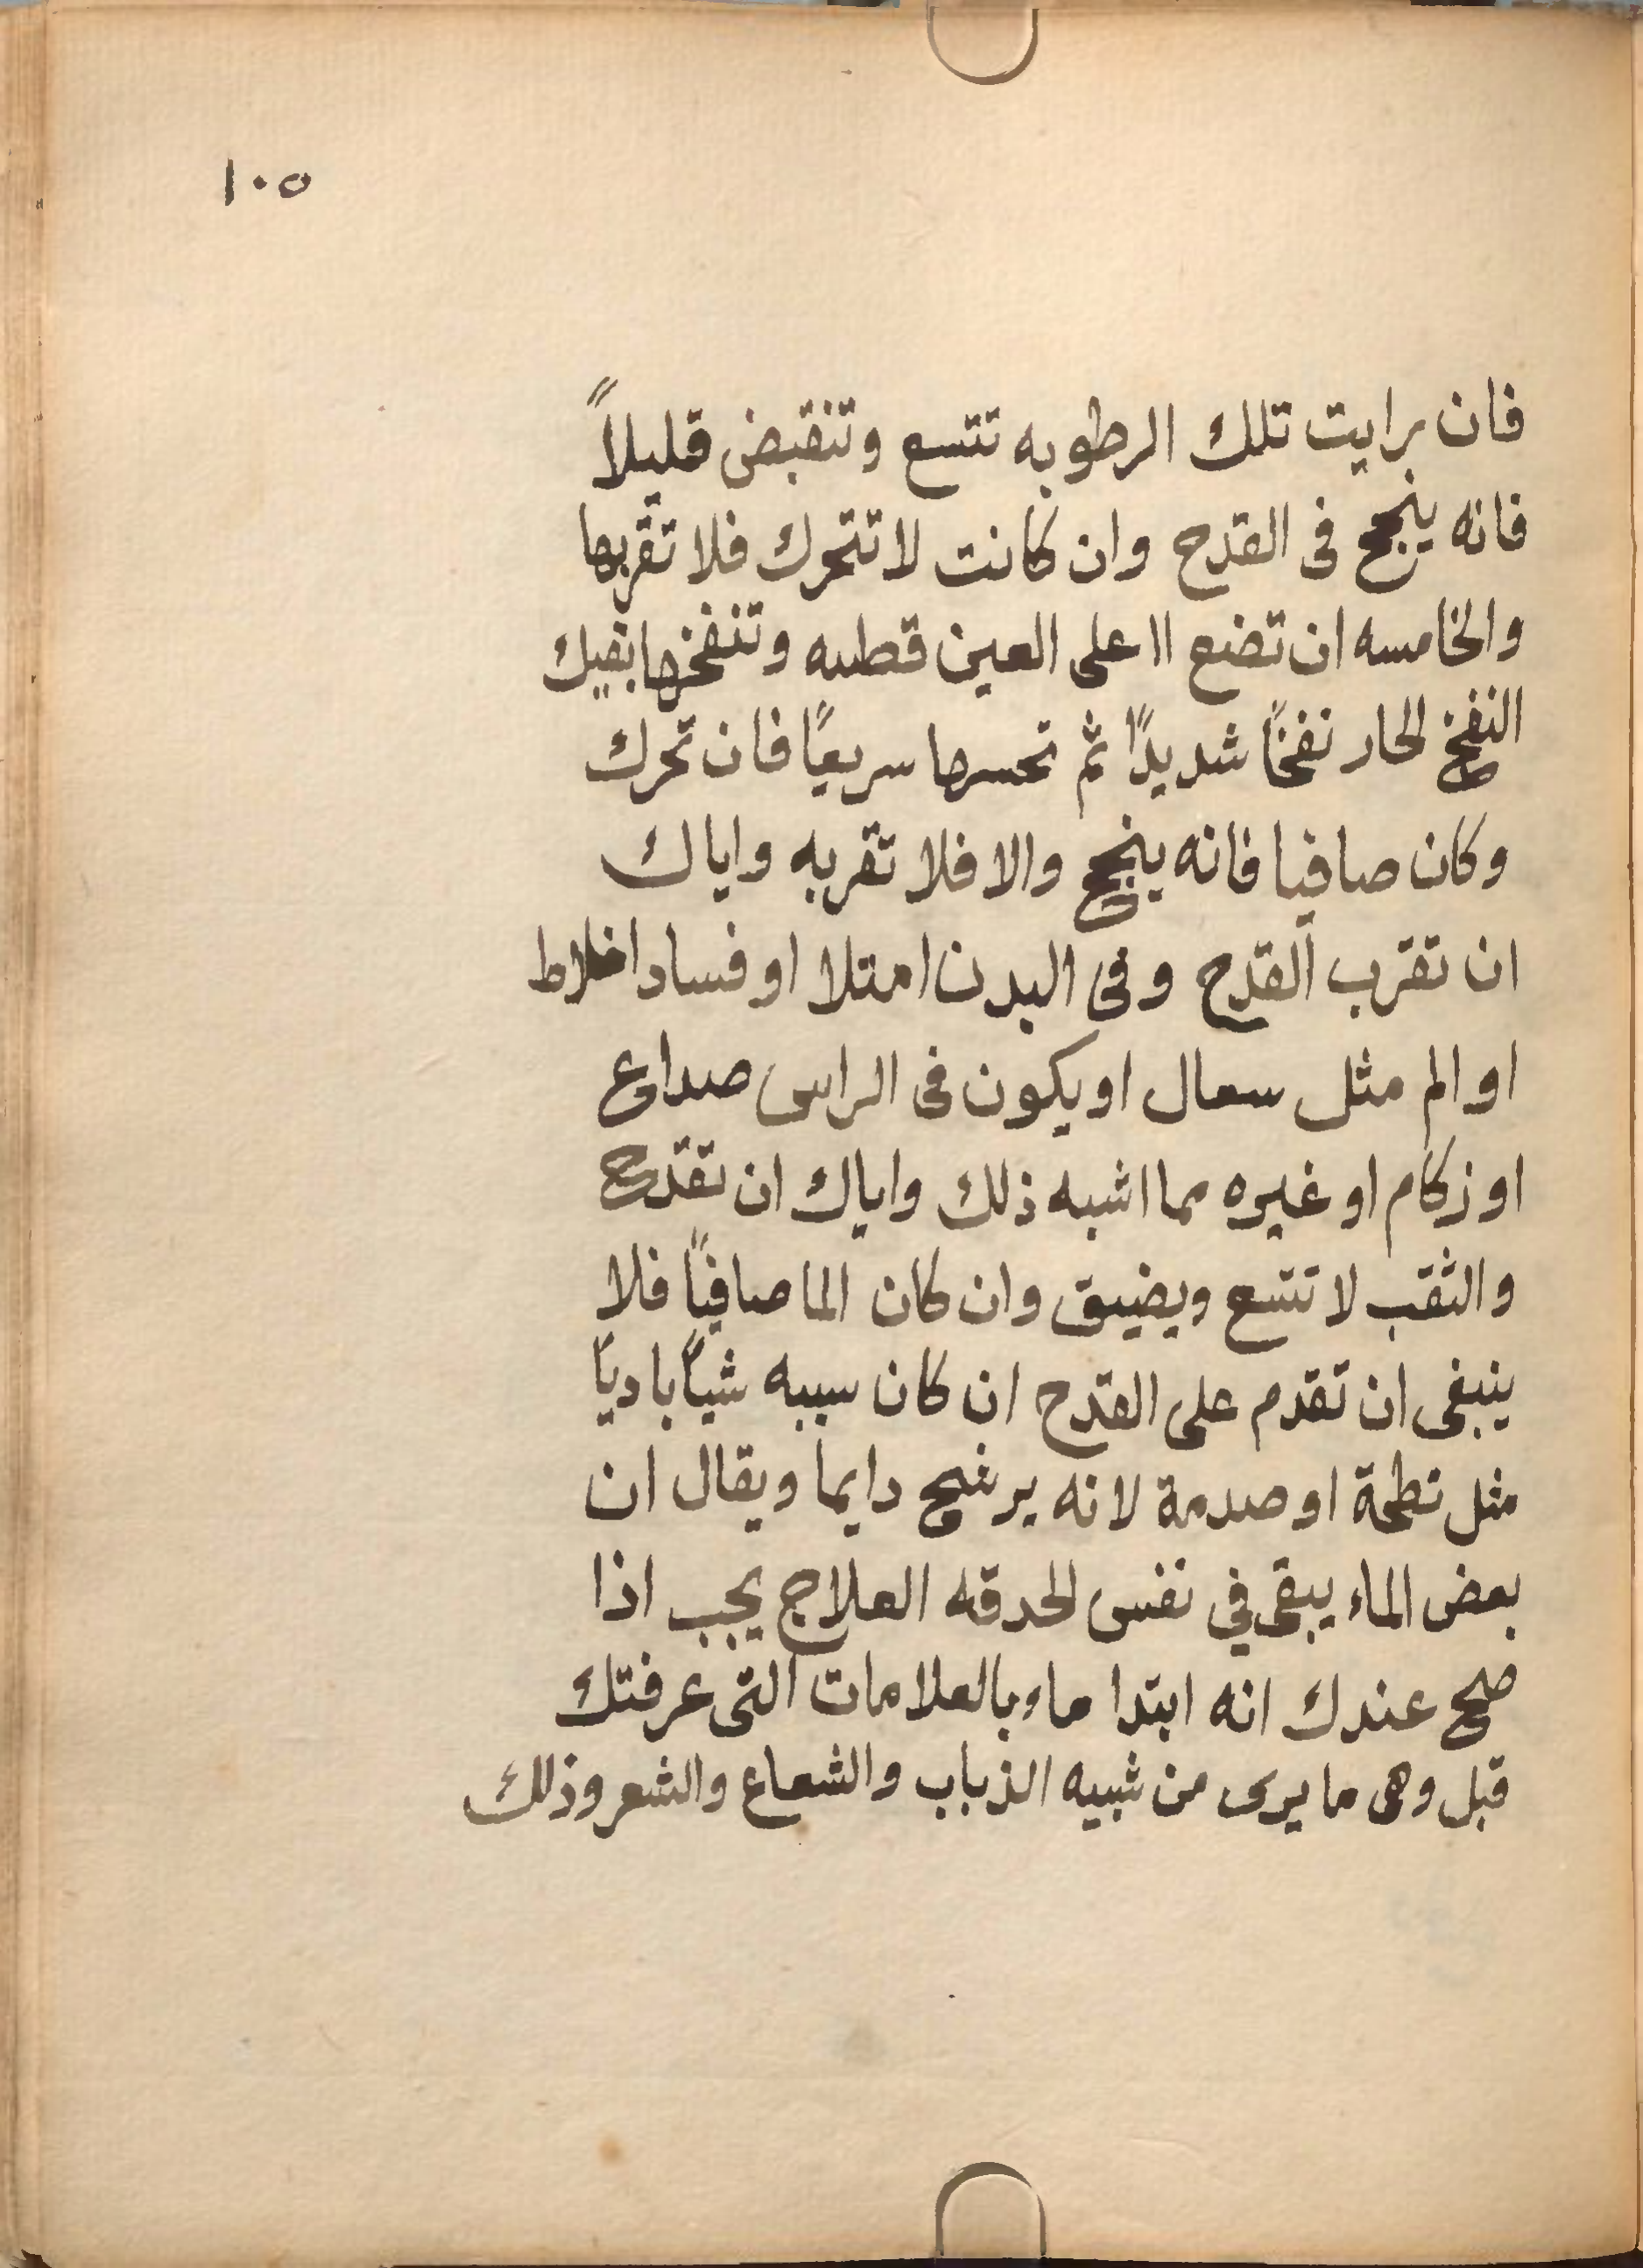 ١٠٥
فان رايت تلك الرطوبه تتسع وتنقبض قليلاً
فانه ينجح فى القدح وان كانت لا تتحرك فلا تقربها
والخامسه ان تضع اا على العين قطنه وتنفخها بفيك
النفخ الحار نفخاً شديداً ثم تحسرها سريعاً فان تحرك
وكان صافيا فانه ينجح والا فلا تقربه واياك
ان تقرب القدح وفى البدن امتلا او فساد اخلاط
او الم مثل سعال او يكون فى الراس صداع
او زكام او غيره مما اشبه ذلك واياك ان تقدح
والثقب لا تتسع ويضيق وان كان الما صافياً فلا
ينبغى ان تقدم على القدح ان كان سببه شياً بادياً
مثل نطحة او صدمة لانه يرشح دايما ويقال ان
بعض الماء يبقى في نفس الحدقه العلاج يجب اذا
صح عندك انه ابتدا ماء بالعلامات التى عرفتك
قبل وهى ما يرى من شبيه الذباب والشعاع والشعر وذلك